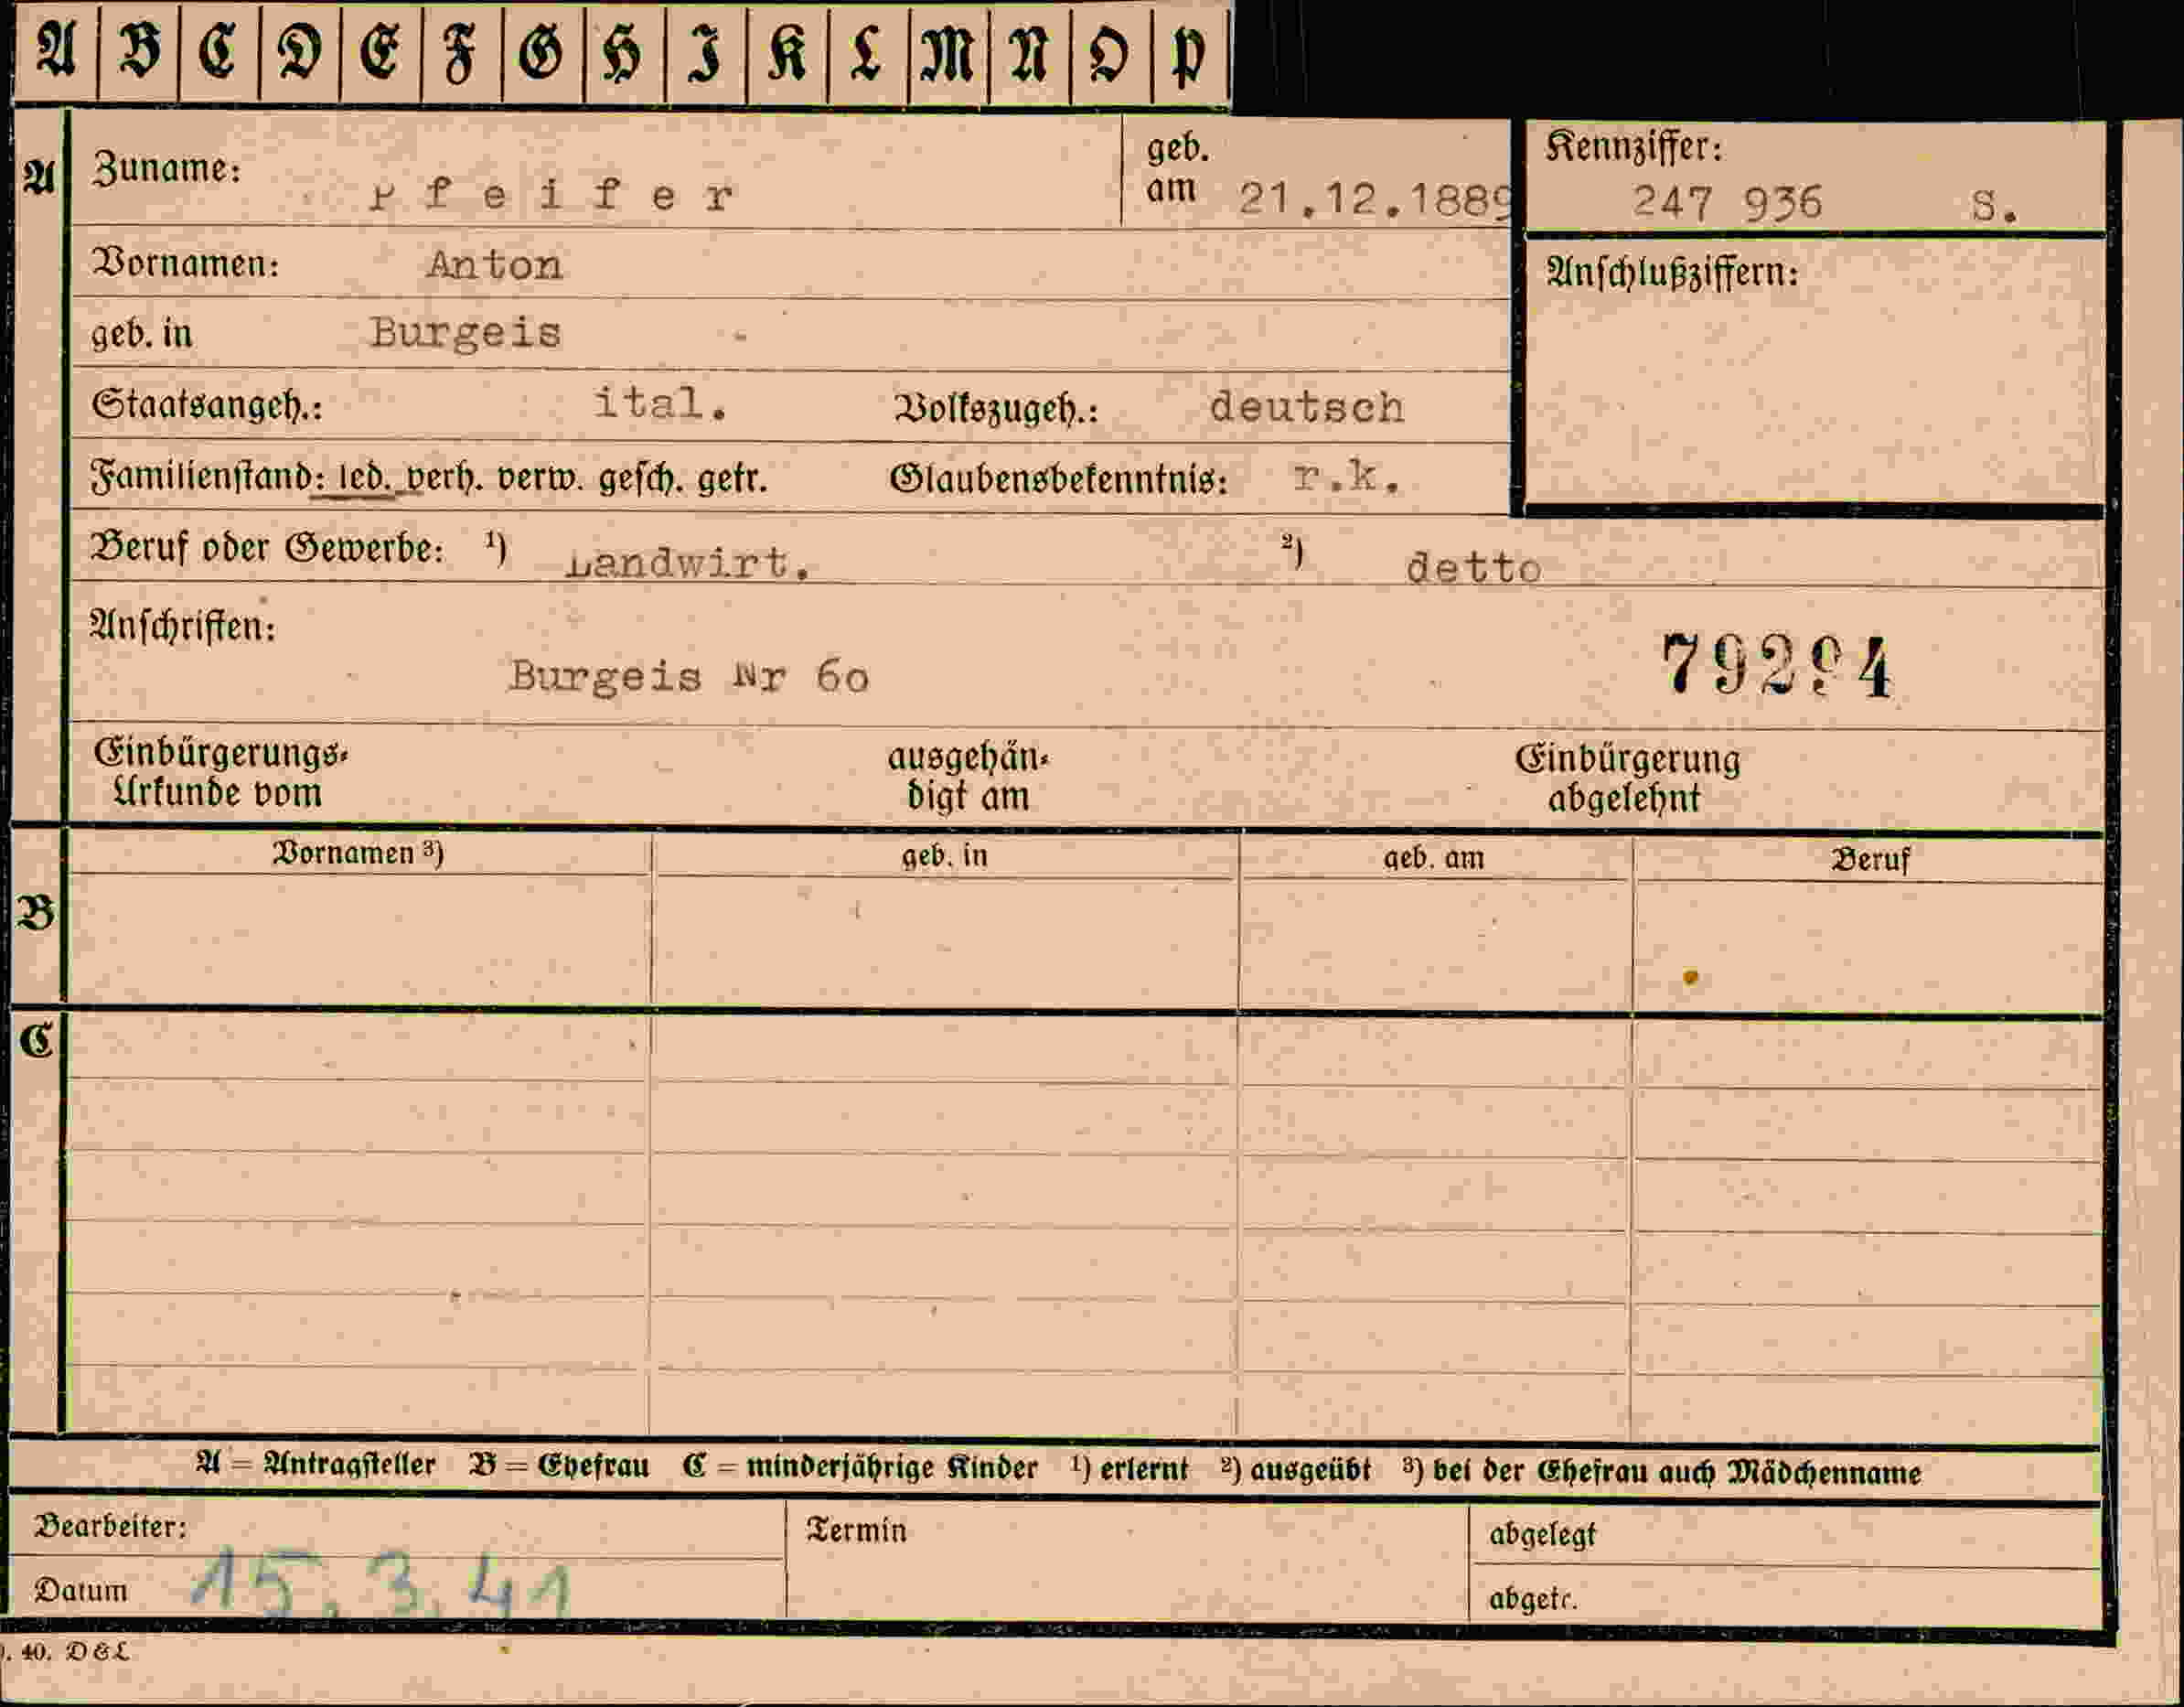 A B C D E F G H I K L M N O P
A Zuname: Pfeifer geb. am 21.12.1889 Kennziffer: 247 936 S.
Vornamen: Anton Anschlußziffern:
geb. in Burgeis
Staatsangeh.: ital. Volkszugeh.: deutsch
Familienstand: led. verh. verw. gesch. getr. Glaubensbekenntnis: r.k.
Beruf oder Gewerbe: ¹) Landwirt. ²) detto
Anschriften:
Burgeis Nr 60 79294
Einbürgerungs- ausgehän- Einbürgerung
Urkunde vom digt am abgelehnt
Vornamen ³) geb. in geb. am Beruf
B
C
A = Antragsteller B = Ehefrau C = minderjährige Kinder ¹) erlernt ²) ausgeübt ³) bei der Ehefrau auch Mädchenname
Bearbeiter: Termin abgelegt
Datum 15.3.41 abgetr.
40. D&L